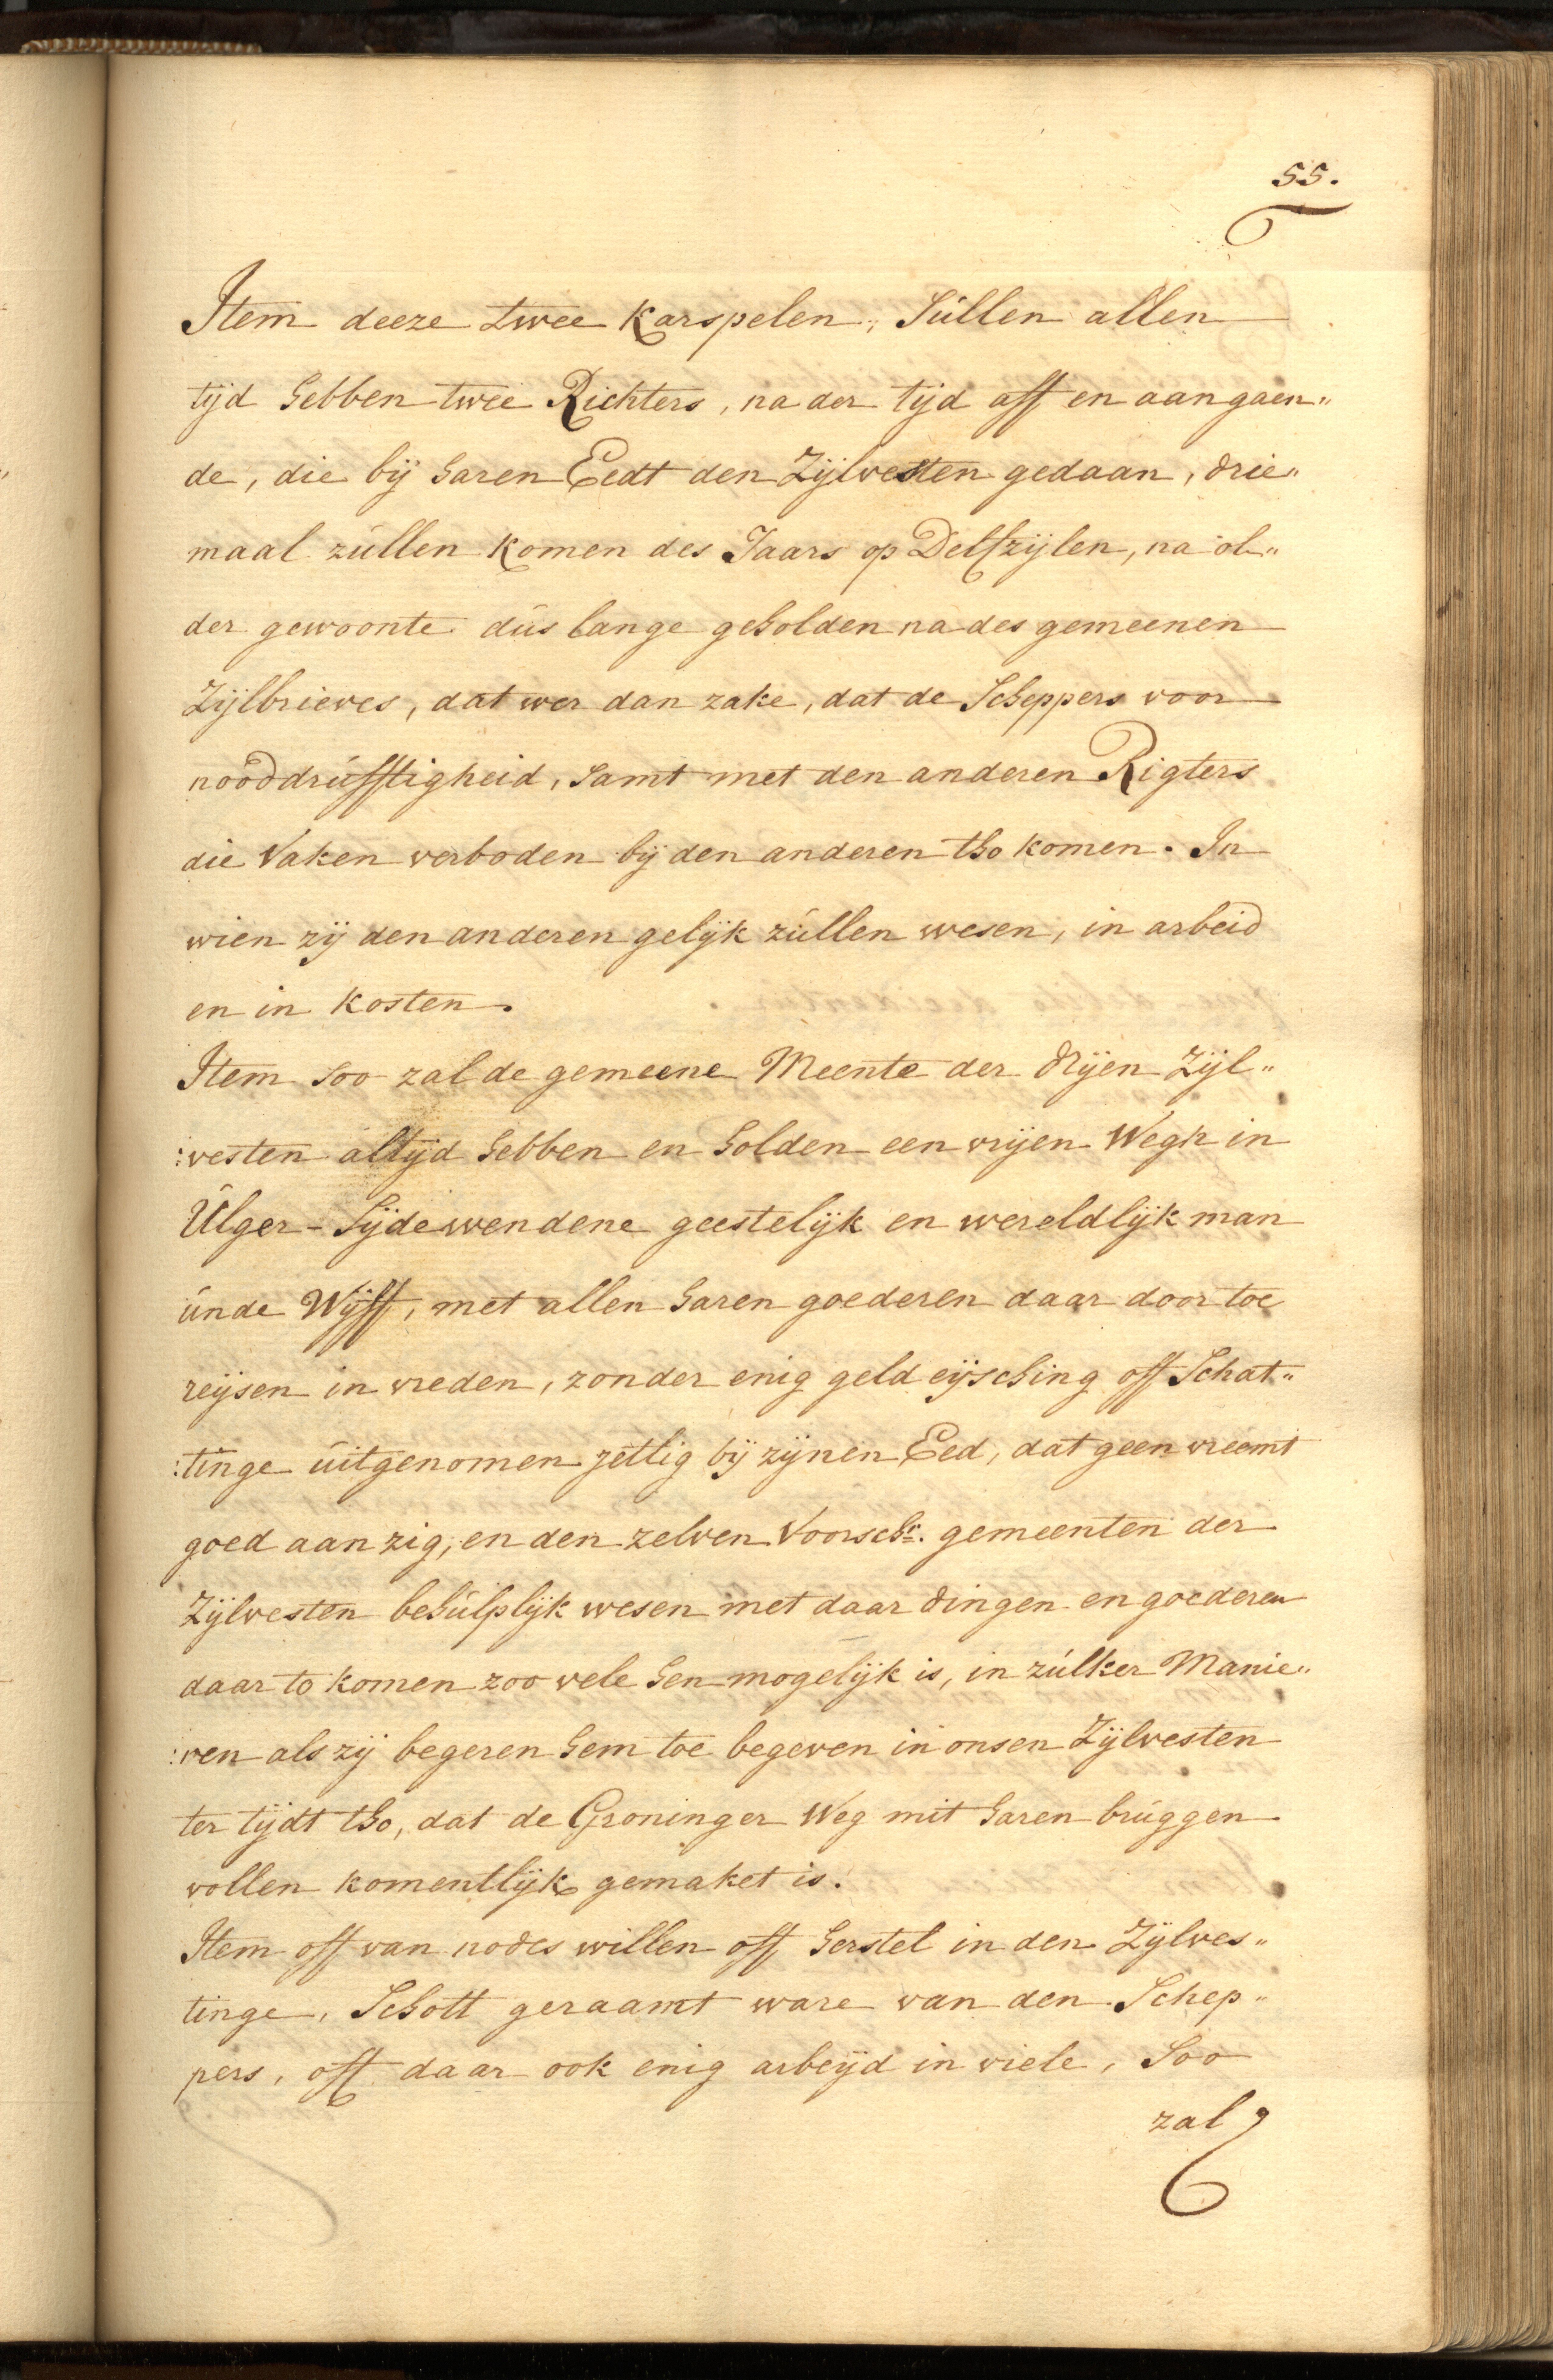 55.
Item deeze twee Karspelen, Súllen allen
tijd hebben twee Richters, na der tijd aff en aangaen„
de, die bij haren Eedt den Zijlvesten gedaan, drie„
maal zúllen komen des Jaars op Delfzijlen, na ol„
der gewoonte dús lange geholden na des gemeenen
Zijlbrieves, dat wer dan zake, dat de Scheppers voor
nooddrúfftigheid, samt met den anderen Rigters
die Vaken verboden bij den anderen tho komen. In
wien zij den anderen gelijk zúllen wesen, in arbeid
en in kosten.
Item soo zal de gemeene Meente der drijen Zijl„
:vesten altijd hebben en holden een vrijen Wegh in
Úlger-Sijdewendene geestelijk en wereldlijk man
únde Wijff, met allen haren goederen daar door toe
reijsen in vreden, zonder enig geld eijsching off Schat„
:tinge úitgenomen jetlig bij zijnen Eed, dat geen vreemt
goed aan zig, en den zelven Voorschr. gemeenten der
Zijlvesten behúlplijk wesen met daar dingen en goederen
daar to komen zoo vele hen mogelijk is, in zúlker Manie„
:ren als zij begeren hem toe begeven in onsen Zijlvesten
ter tijdt tho, dat de Groninger Weg mit haren brúggen
vollen komentlijk gemaket is.
Item off van nodes willen off herstel in den Zijlves„
tinge, Schott geraamt ware van den Schep„
pers, off daar ook enig arbeijd in viele, Soo
zal